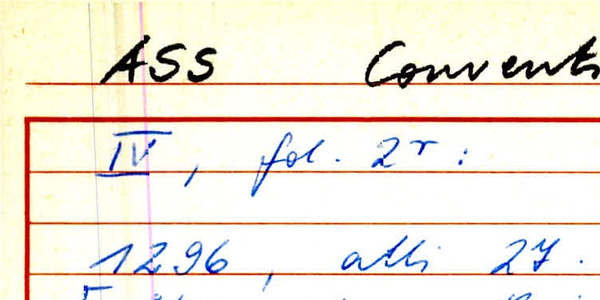 ASS Convent
IV, fol. 2r:
1296, atti 27.